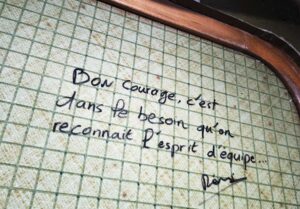 Bon courage, c'est
dans le besoin qu'on
reconnait l'esprit d'équipe...